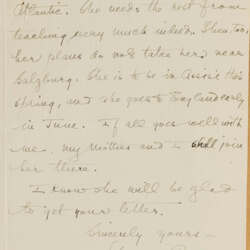 Atlantic. She needs the rest from
teaching very much indeed. Then too,
her plans do not take her near
Salzburg. She is to be in Assisi this
spring, and she goes to England early
in June. If all goes well with
me, my mother and I shall join
her there.
I know she will be glad
to get your letter.
Sincerely yours—